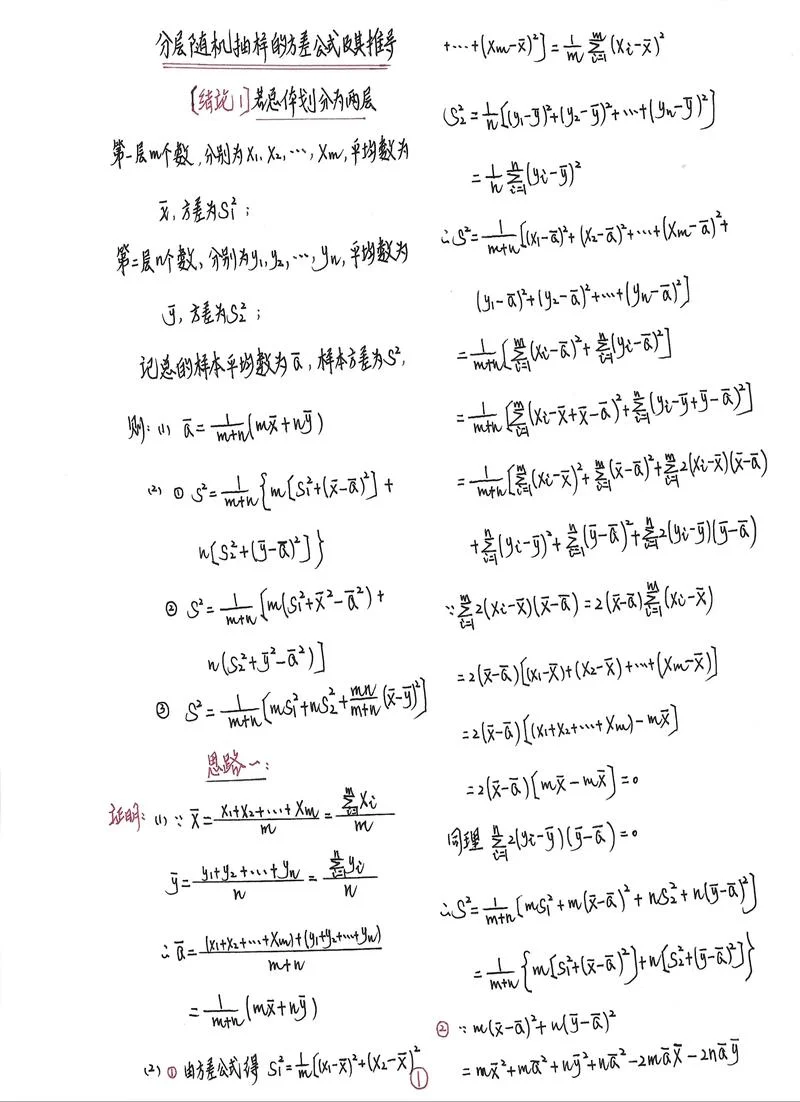 分层随机抽样的方差公式及其推导
[结论1]若总体划分为两层
第一层m个数,分别为x₁,x₂,…,xₘ,平均数为
x̄,方差为S₁²;
第二层n个数,分别为y₁,y₂,…,yₙ,平均数为
ȳ,方差为S₂²;
记总的样本平均数为ā,样本方差为S²,
则:(1) ā=1/(m+n)(mx̄+nȳ)
(2) ① S²=1/(m+n){m[S₁²+(x̄-ā)²]+
n[S₂²+(ȳ-ā)²]}
② S²=1/(m+n)[m(S₁²+x̄²-ā²)+
n(S₂²+ȳ²-ā²)]
③ S²=1/(m+n)[mS₁²+nS₂²+mn/(m+n)(x̄-ȳ)²]
思路一:
证明:(1) ∵ x̄=(x₁+x₂+…+xₘ)/m=(∑ᵢ₌₁ᵐxᵢ)/m
ȳ=(y₁+y₂+…+yₙ)/n=(∑ᵢ₌₁ⁿyᵢ)/n
∴ ā=((x₁+x₂+…+xₘ)+(y₁+y₂+…+yₙ))/(m+n)
=1/(m+n)(mx̄+nȳ)
(2) ① 由方差公式得 S₁²=1/m[(x₁-x̄)²+(x₂-x̄)²
①
+…+(xₘ-x̄)²]=1/m ∑ᵢ₌₁ᵐ(xᵢ-x̄)²
S₂²=1/n[(y₁-ȳ)²+(y₂-ȳ)²+…+(yₙ-ȳ)²]
=1/n ∑ᵢ₌₁ⁿ(yᵢ-ȳ)²
∴S²=1/(m+n)[(x₁-ā)²+(x₂-ā)²+…+(xₘ-ā)²+
(y₁-ā)²+(y₂-ā)²+…+(yₙ-ā)²]
=1/(m+n)[∑ᵢ₌₁ᵐ(xᵢ-ā)²+∑ᵢ₌₁ⁿ(yᵢ-ā)²]
=1/(m+n)[∑ᵢ₌₁ᵐ(xᵢ-x̄+x̄-ā)²+∑ᵢ₌₁ⁿ(yᵢ-ȳ+ȳ-ā)²]
=1/(m+n)[∑ᵢ₌₁ᵐ(xᵢ-x̄)²+∑ᵢ₌₁ᵐ(x̄-ā)²+∑ᵢ₌₁ᵐ2(xᵢ-x̄)(x̄-ā)
+∑ᵢ₌₁ⁿ(yᵢ-ȳ)²+∑ᵢ₌₁ⁿ(ȳ-ā)²+∑ᵢ₌₁ⁿ2(yᵢ-ȳ)(ȳ-ā)
∵∑ᵢ₌₁ᵐ2(xᵢ-x̄)(x̄-ā)=2(x̄-ā)∑ᵢ₌₁ᵐ(xᵢ-x̄)
=2(x̄-ā)[(x₁-x̄)+(x₂-x̄)+…+(xₘ-x̄)]
=2(x̄-ā)[(x₁+x₂+…+xₘ)-mx̄]
=2(x̄-ā)[mx̄-mx̄]=0
同理 ∑ᵢ₌₁ⁿ2(yᵢ-ȳ)(ȳ-ā)=0
∴S²=1/(m+n)[mS₁²+m(x̄-ā)²+nS₂²+n(ȳ-ā)²]
=1/(m+n){m[S₁²+(x̄-ā)²]+n[S₂²+(ȳ-ā)²]}
② ∵ m(x̄-ā)²+n(ȳ-ā)²
=mx̄²+mā²+nȳ²+nā²-2māx̄-2nāȳ